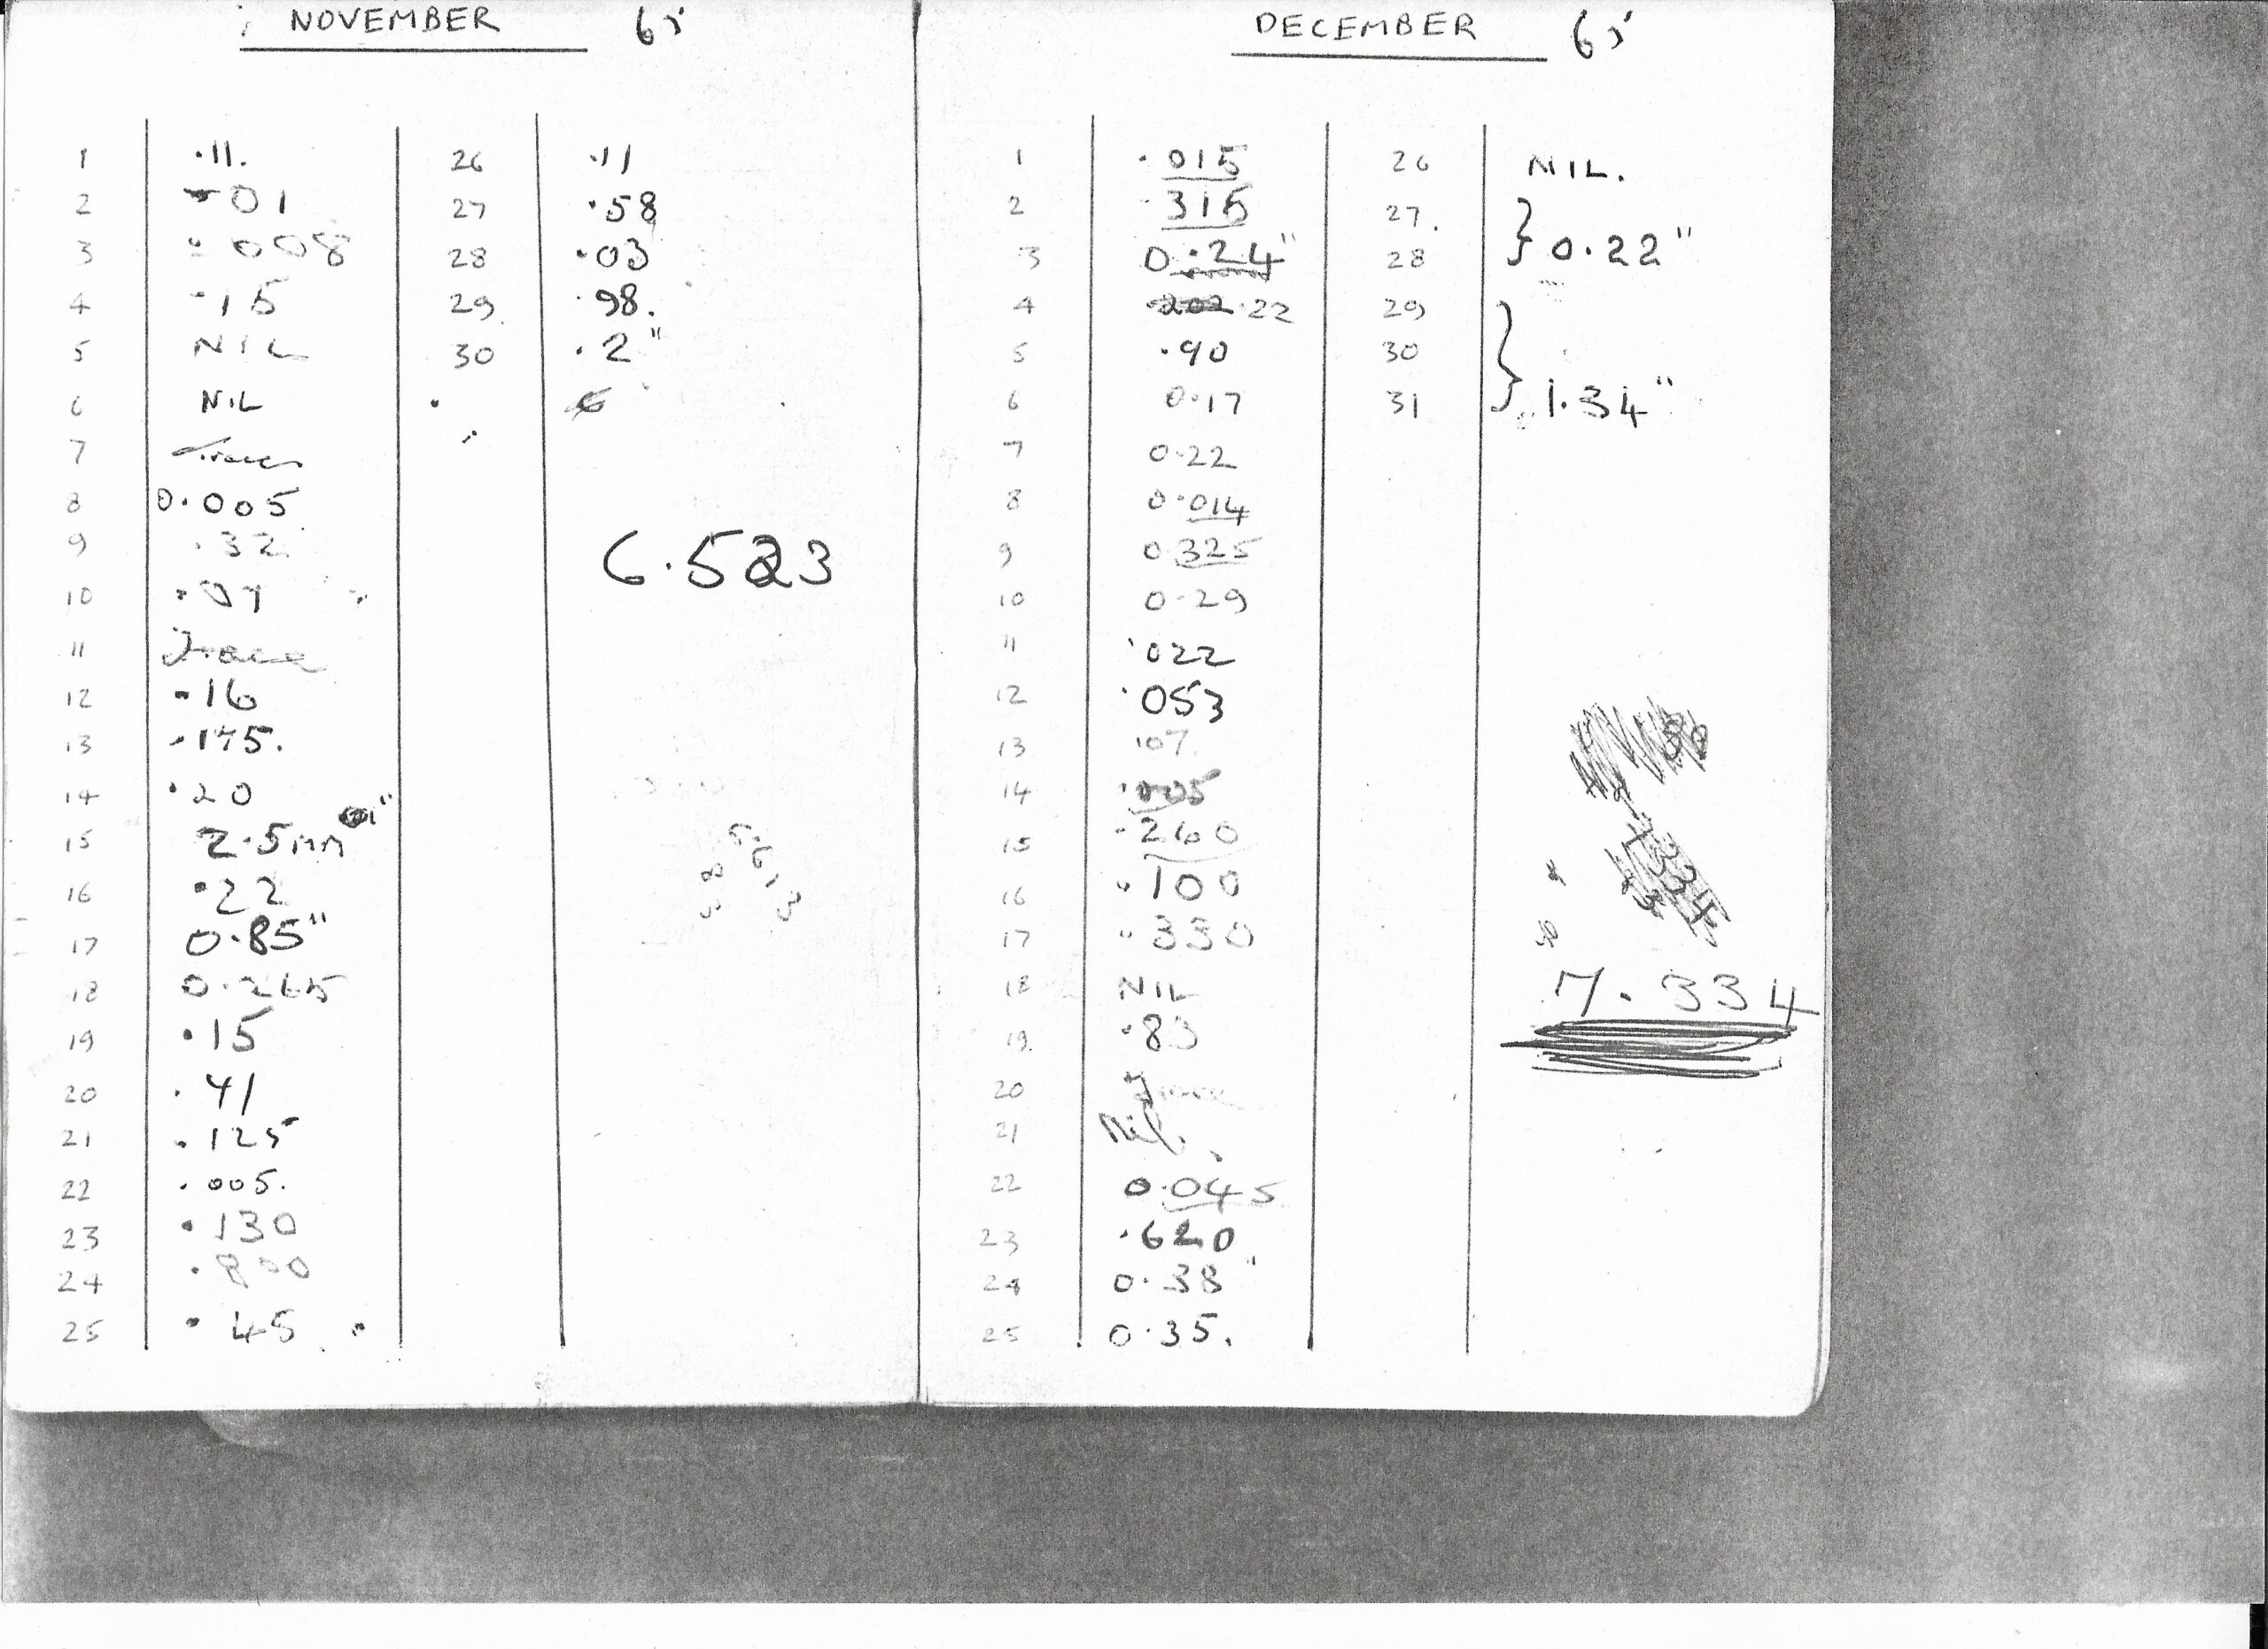 NOVEMBER 65
1 .11.
2 .01
3 .008
4 .15
5 NIL
6 NIL
7 Trace
8 0.005
9 .32
10
11 Trace
12 .16
13 .175.
14 .20
15 2.5mm
16 .22
17 0.85"
18 0.265
19 .15
20 .41
21 .125
22 .005.
23 .130
24 .800
25 .45
26 .11
27 .58
28 .03
29 .98.
30 .2"
6.523
DECEMBER 65
1 .015
2 .315
3 0.24"
4 .22
5 .90
6 0.17
7 0.22
8 0.014
9 0.325
10 0.29
11 .022
12 .053
13 .07
14 .005
15 .260
16 .100
17 .330
18 NIL
19 .83
20 Trace
21 Nil.
22 0.045
23 .620
24 0.38"
25 0.35.
26 NIL.
27.
28 } 0.22"
29
30
31 } 1.34"
7334
7.334